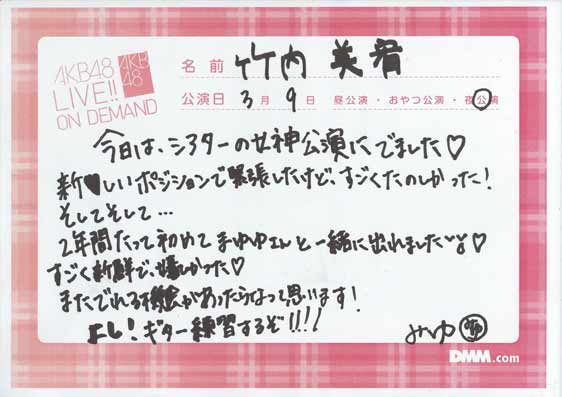 AKB48
LIVE!!
ON DEMAND
AKB
48
名前 竹内 美宥
公演日 3月 9日 昼公演・おやつ公演・夜公演
今日は、シアターの女神公演にでました♡
新♥しいポジションで緊張したけど、すごくたのしかった!
そしてそして…
2年間たって初めてまゆゆさんと一緒に出れました♡
すごく新鮮で、嬉しかった♡
またでれる機会があったらなって思います!
よし!ギター練習するぞ!!!!
みゆ
DMM.com